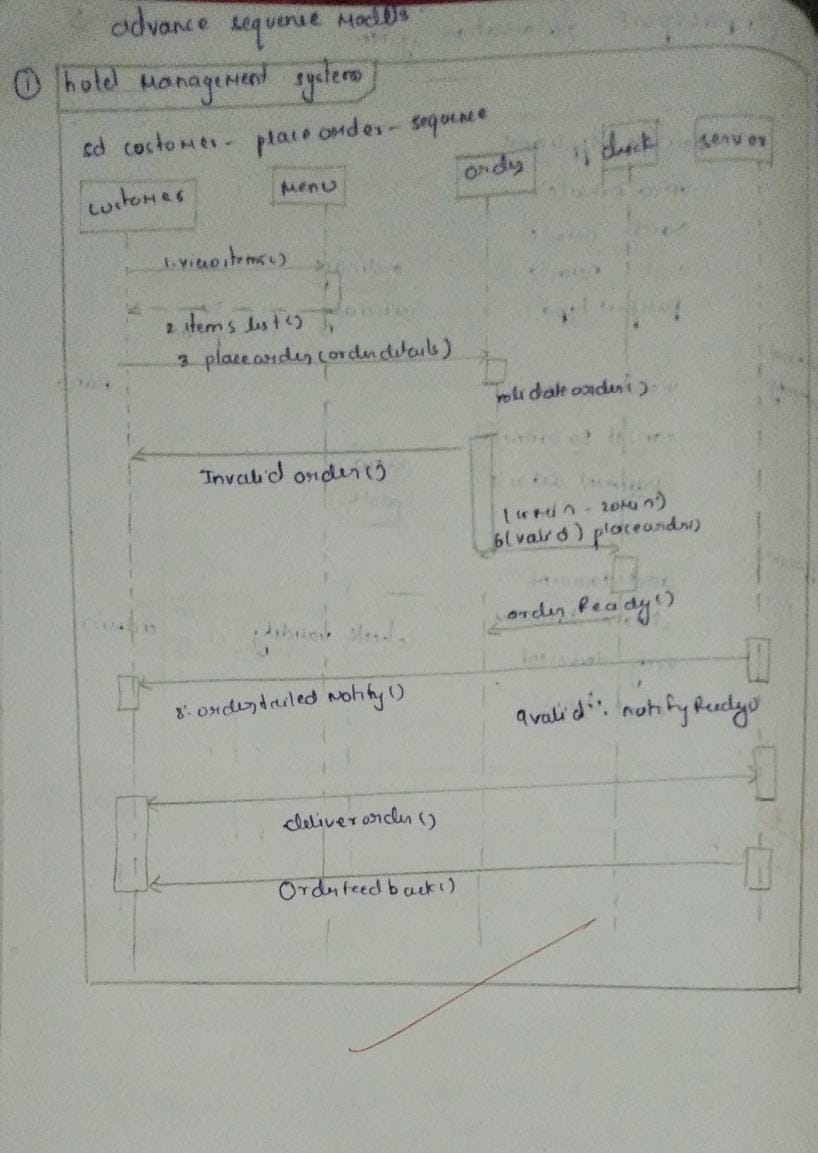 advance sequence Models
① hotel Management system
sd costomer - place order - sequence
customer
Menu
order
check
server
1. view items()
2 items list()
3 place order (order details)
validate order()
Invalid order()
6 (valid) place order()
order Ready()
8. order failed Notify()
9 valid : notify Ready()
deliver order ()
Order feedback()